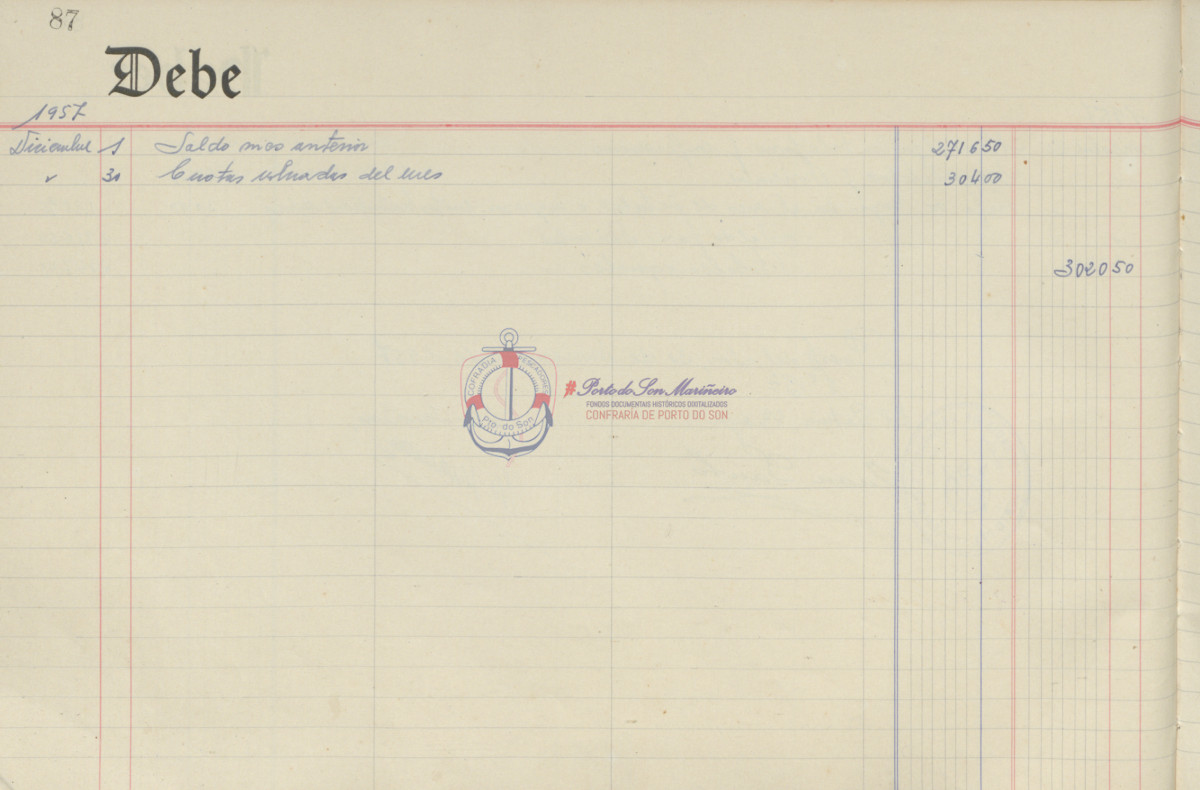 87
Debe
1957
Diciembre 1 Saldo mes anterior 271650
" 31 Cuotas del mes 30400
302050
COFRADIA PESCADORES
Pto. do Son
# Porto do Son Mariñeiro
FONDOS DOCUMENTAIS HISTÓRICOS DIXITALIZADOS
CONFRARÍA DE PORTO DO SON